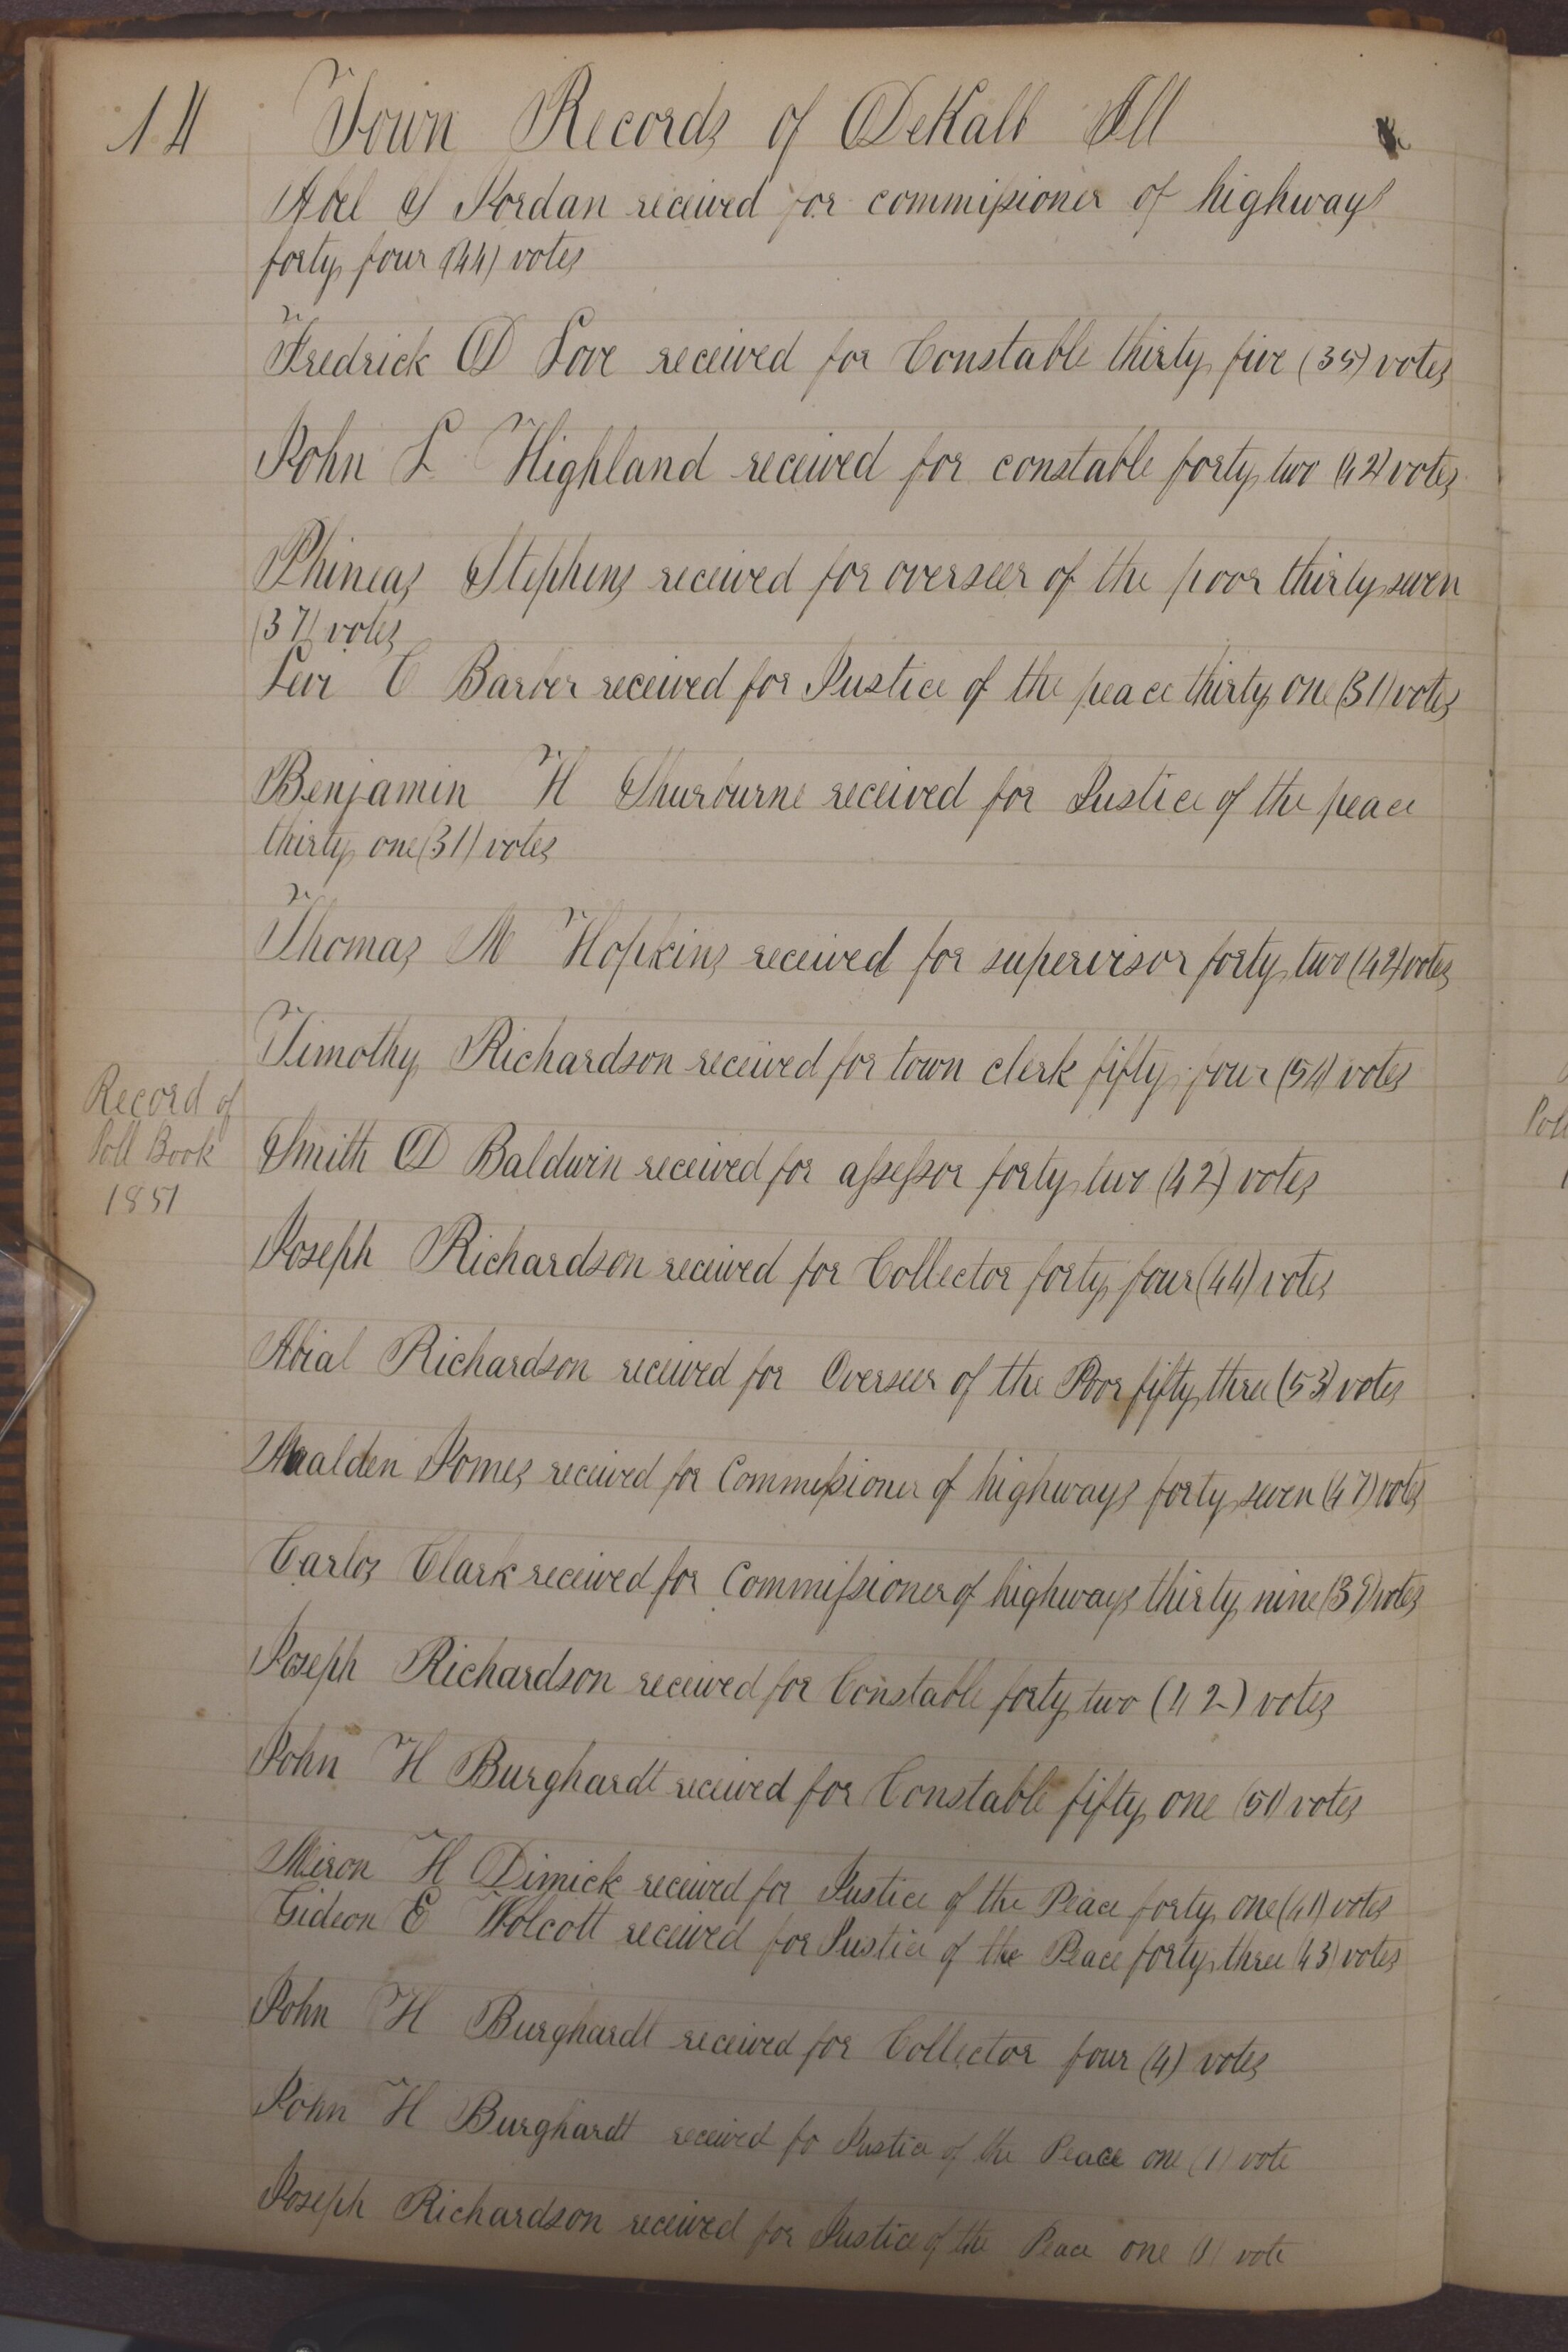 14 Town Records of DeKalb Ill
Abel S Jordan received for commissioner of highways
forty four (44) votes
Fredrick D Love received for Constable thirty five (35) votes
John L Highland received for constable forty two (42) votes
Phineas Stephens received for overseer of the poor thirty seven
(37) votes
Levi C Barber received for Justice of the peace thirty one (31) votes
Benjamin H Shurburne received for Justice of the peace
thirty one (31) votes
Thomas M Hopkins received for supervisor forty two (42) votes
Timothy Richardson received for town clerk fifty four (54) votes
Record of
Poll Book
1851
Smith D Baldwin received for assessor forty two (42) votes
Joseph Richardson received for Collector forty four (44) votes
Abial Richardson received for Overseer of the Poor fifty three (53) votes
Jomes received for Commissioner of highways forty seven (47) votes
Carlos Clark received for Commissioner of highways thirty nine (39) votes
Joseph Richardson received for Constable forty two (42) votes
John H Burghardt received for Constable fifty one (51) votes
Miron H Dimick received for Justice of the Peace forty one (41) votes
Gideon E Wolcott received for Justice of the Peace forty three (43) votes
John H Burghardt received for Collector four (4) votes
John H Burghardt received fo Justice of the Peace one (1) vote
Joseph Richardson received for Justice of the Peace one (1) vote